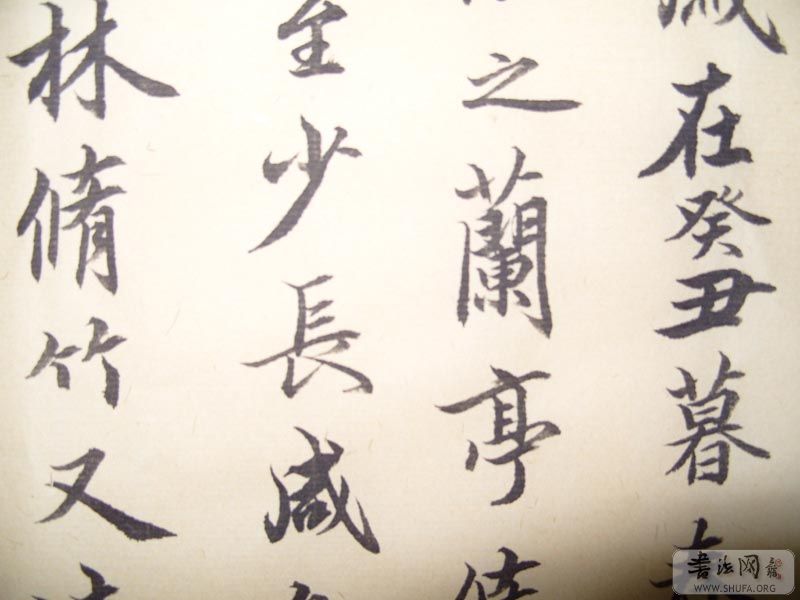 歲在癸丑暮春
之蘭亭脩
至少長咸
林脩竹又
書法网
WWW.SHUFA.ORG